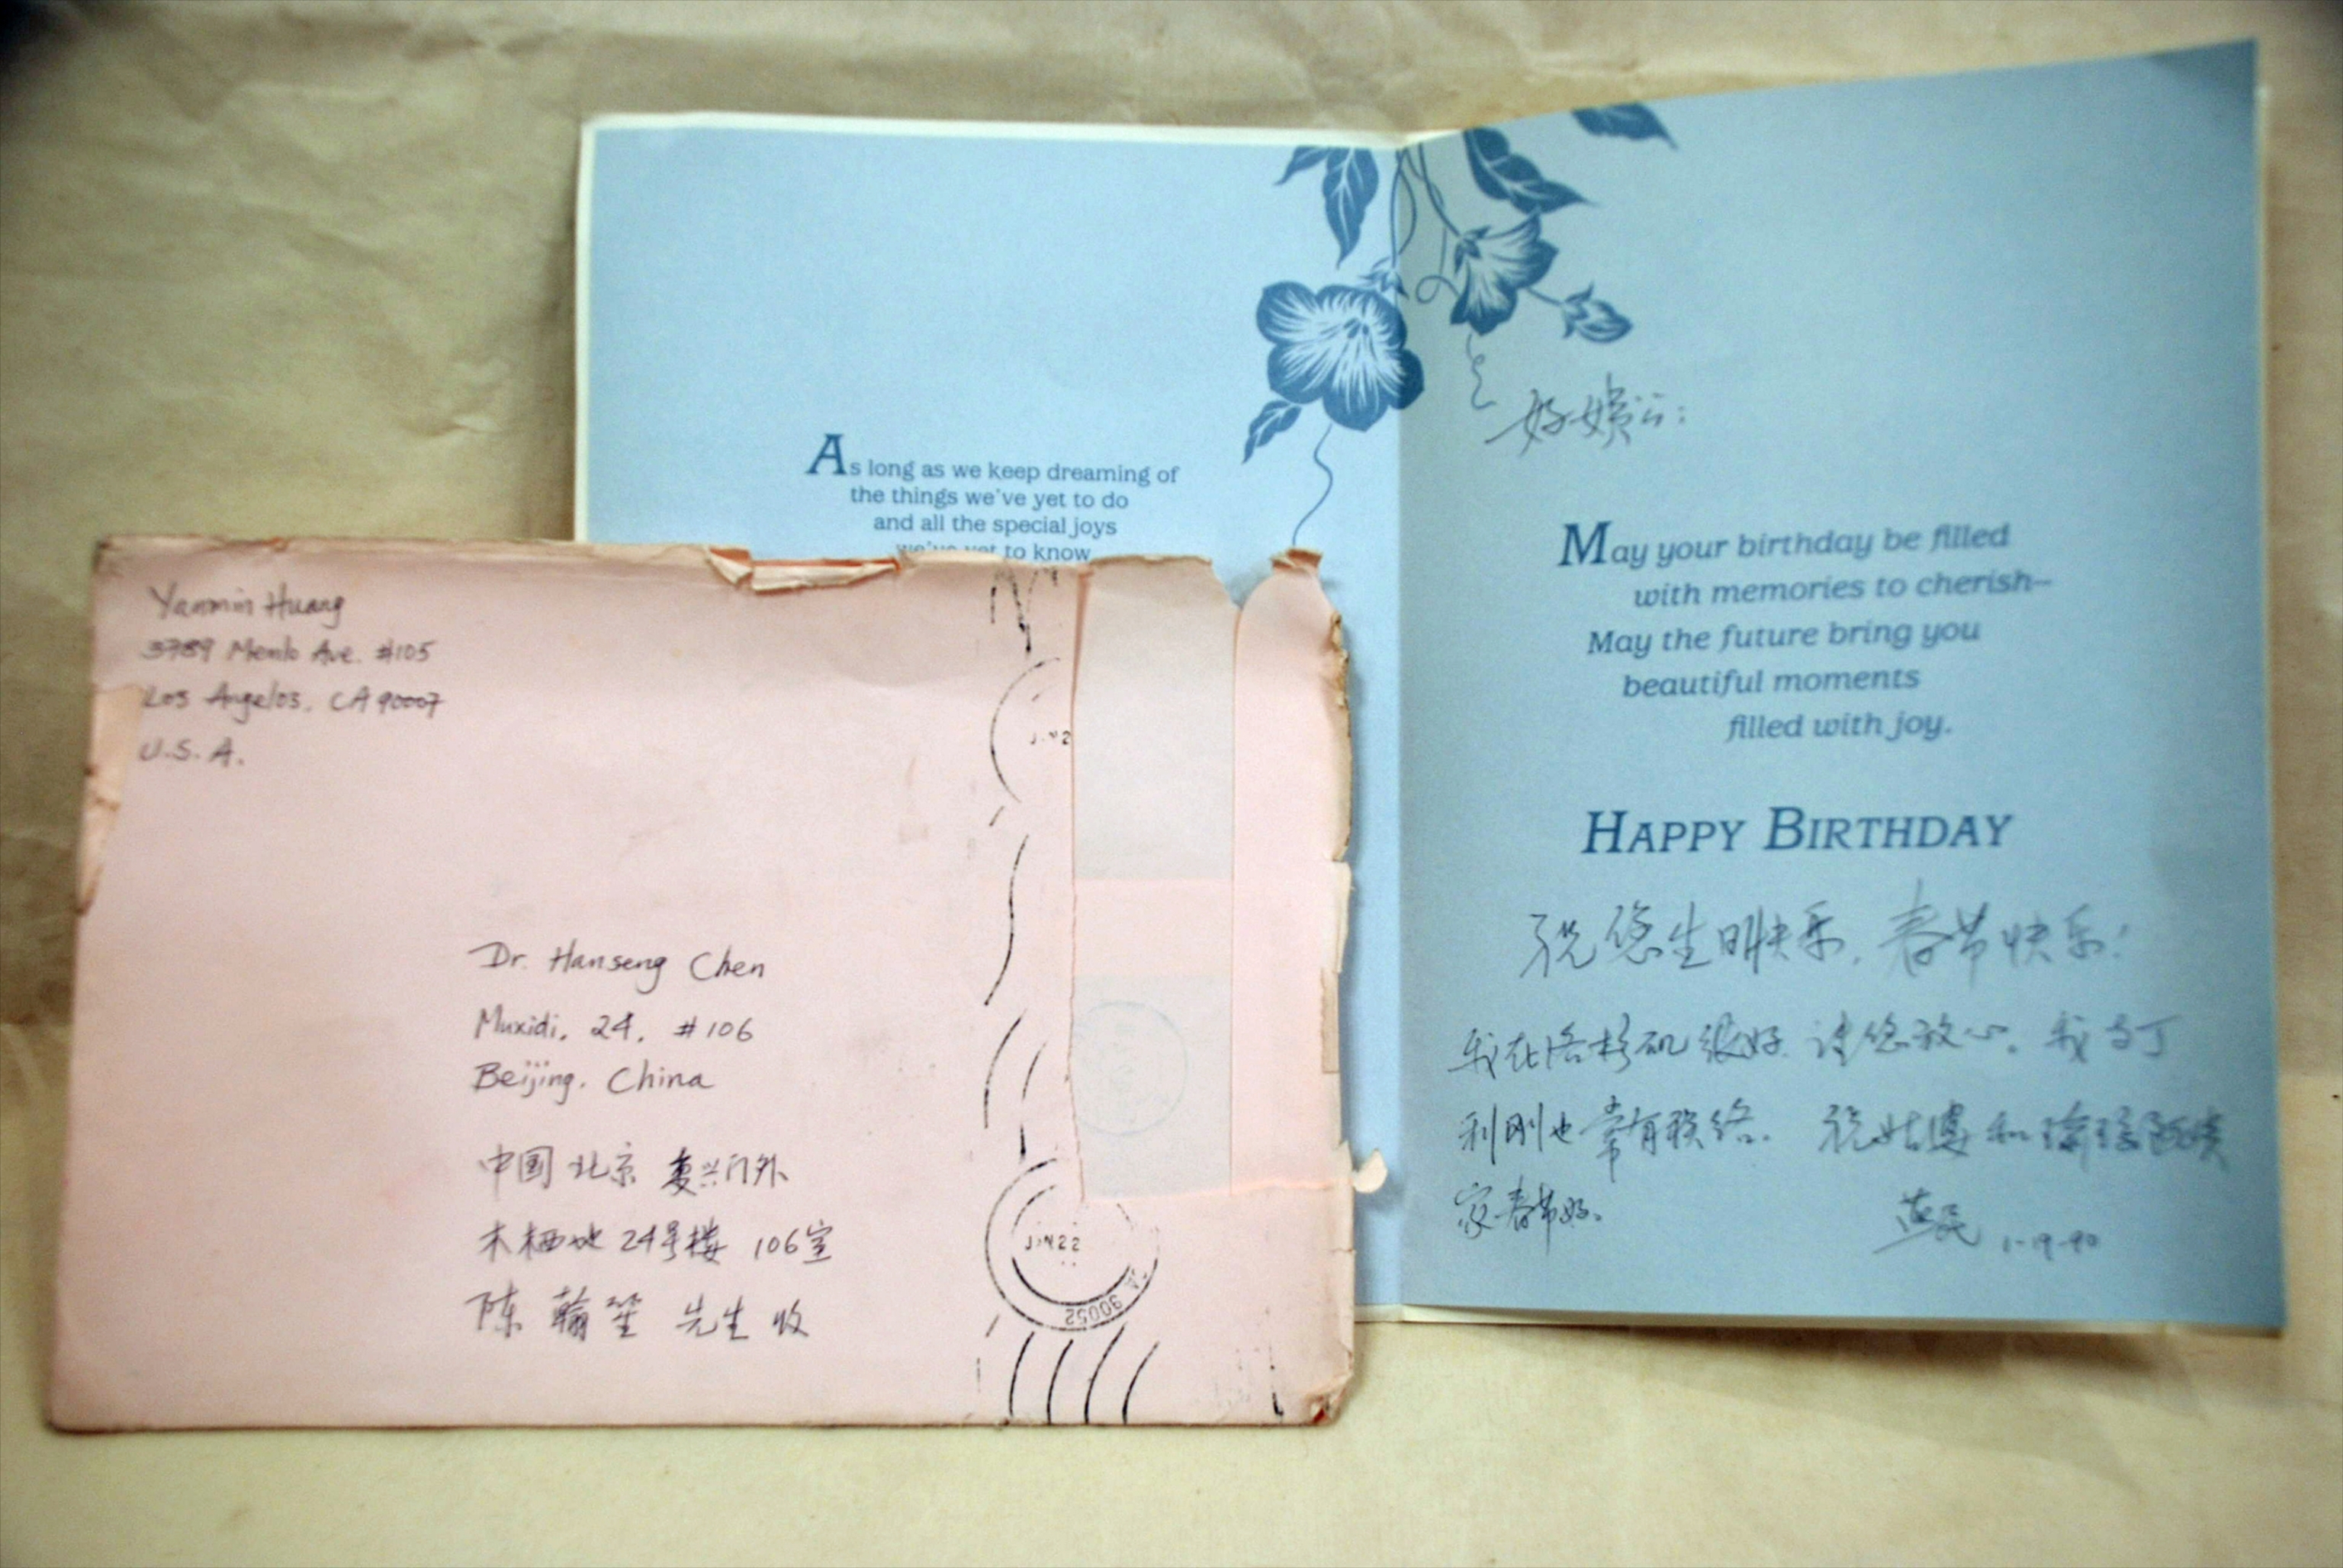 Yanmin Huang
3789 Menlo Ave. #105
Los Angelos, CA 90007
U.S.A.
Dr. Hanseng Chen
Muxidi, 24, #106
Beijing, China
中国 北京 复兴门外
木栖地 24号楼 106室
陈 翰笙 先生 收
JAN 2
JAN 22
CA 90052
As long as we keep dreaming of
the things we've yet to do
and all the special joys
we've yet to know
May your birthday be filled
with memories to cherish—
May the future bring you
beautiful moments
filled with joy.
HAPPY BIRTHDAY
祝您生日快乐，春节快乐！
我在洛杉矶很好 请您放心。我与丁
利刚也常有联络。 祝姑婆和
家春节好。
燕民 1-19-90